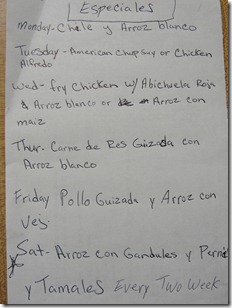 Especiales
Monday- Chile y Arroz blanco
Tuesday- American Chupsuy or Chicken
Alfredo
Wed- fry Chicken w/ Abichuela Roja
& Arroz blanco or Arroz con
maiz
Thur- Carne de Res Guizada con
Arroz blanco
Friday Pollo Guizada y Arroz con
Veg.
Sat- Arroz con Gandules y Pernil
y Tamales Every Two Week